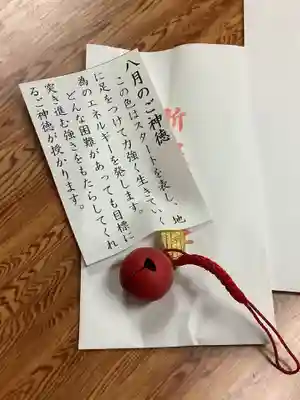 八月のご神徳
この色はスタートを表し、地
に足をつけて力強く生きていく
為のエネルギーを発します。
どんな困難があっても目標に
突き進む強さをもたらしてくれ
るご神徳が授かります。
祈